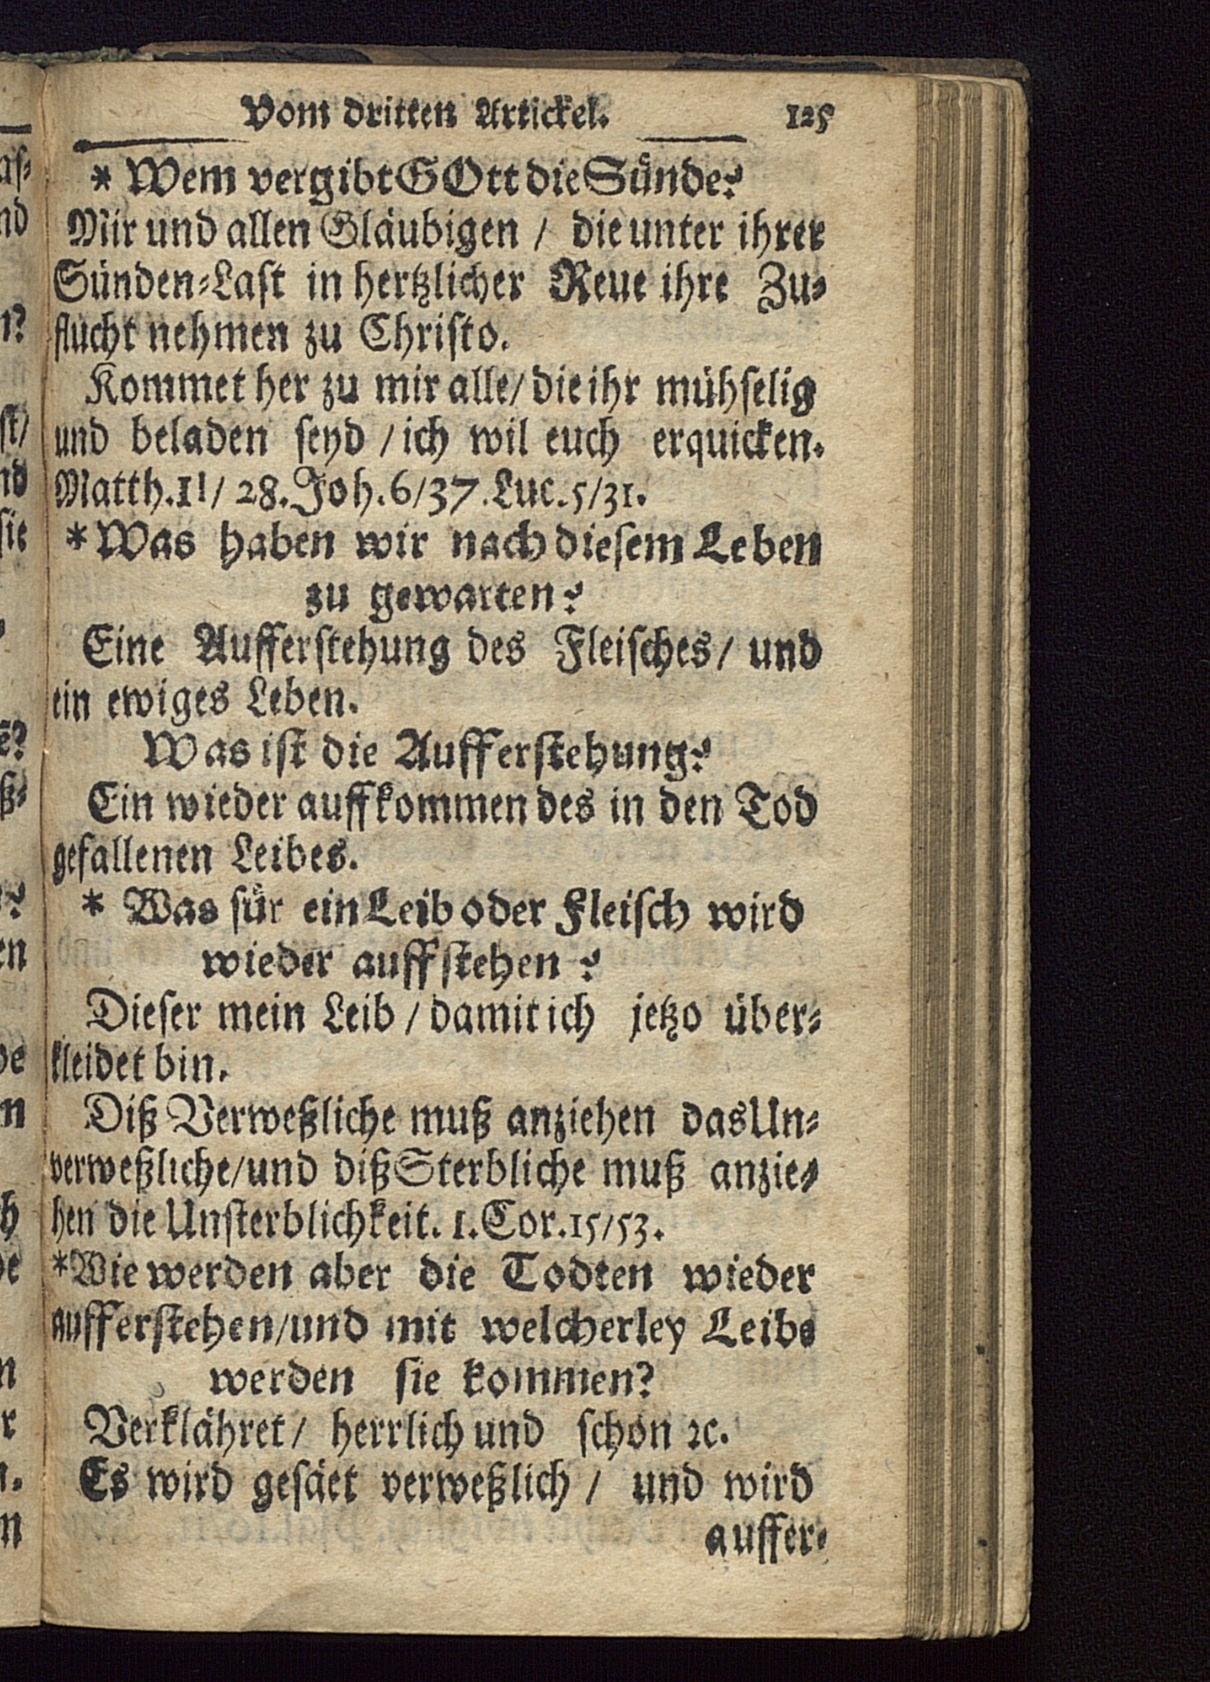 Vom dritten Artickel. 125
* Wem vergibt GOtt die Sünde?
Mir und allen Gläubigen / die unter ihrer
Sünden-Last in hertzlicher Reue ihre Zu-
flucht nehmen zu Christo.
Kommet her zu mir alle / die ihr mühselig
und beladen seyd / ich wil euch erquicken.
Matth. 11 / 28. Joh. 6 / 37. Luc. 5 / 31.
* Was haben wir nach diesem Leben
zu gewarten?
Eine Aufferstehung des Fleisches / und
ein ewiges Leben.
Was ist die Aufferstehung?
Ein wieder auffkommen des in den Tod
gefallenen Leibes.
* Was für ein Leib oder Fleisch wird
wieder auffstehen?
Dieser mein Leib / damit ich jetzo über-
kleidet bin.
Diß Verweßliche muß anziehen das Un-
verweßliche / und diß Sterbliche muß anzie-
hen die Unsterblichkeit. 1. Cor. 15 / 53.
* Wie werden aber die Todten wieder
aufferstehen / und mit welcherley Leibe
werden sie kommen?
Verklähret / herrlich und schön ꝛc.
Es wird gesäet verweßlich / und wird
auffer-